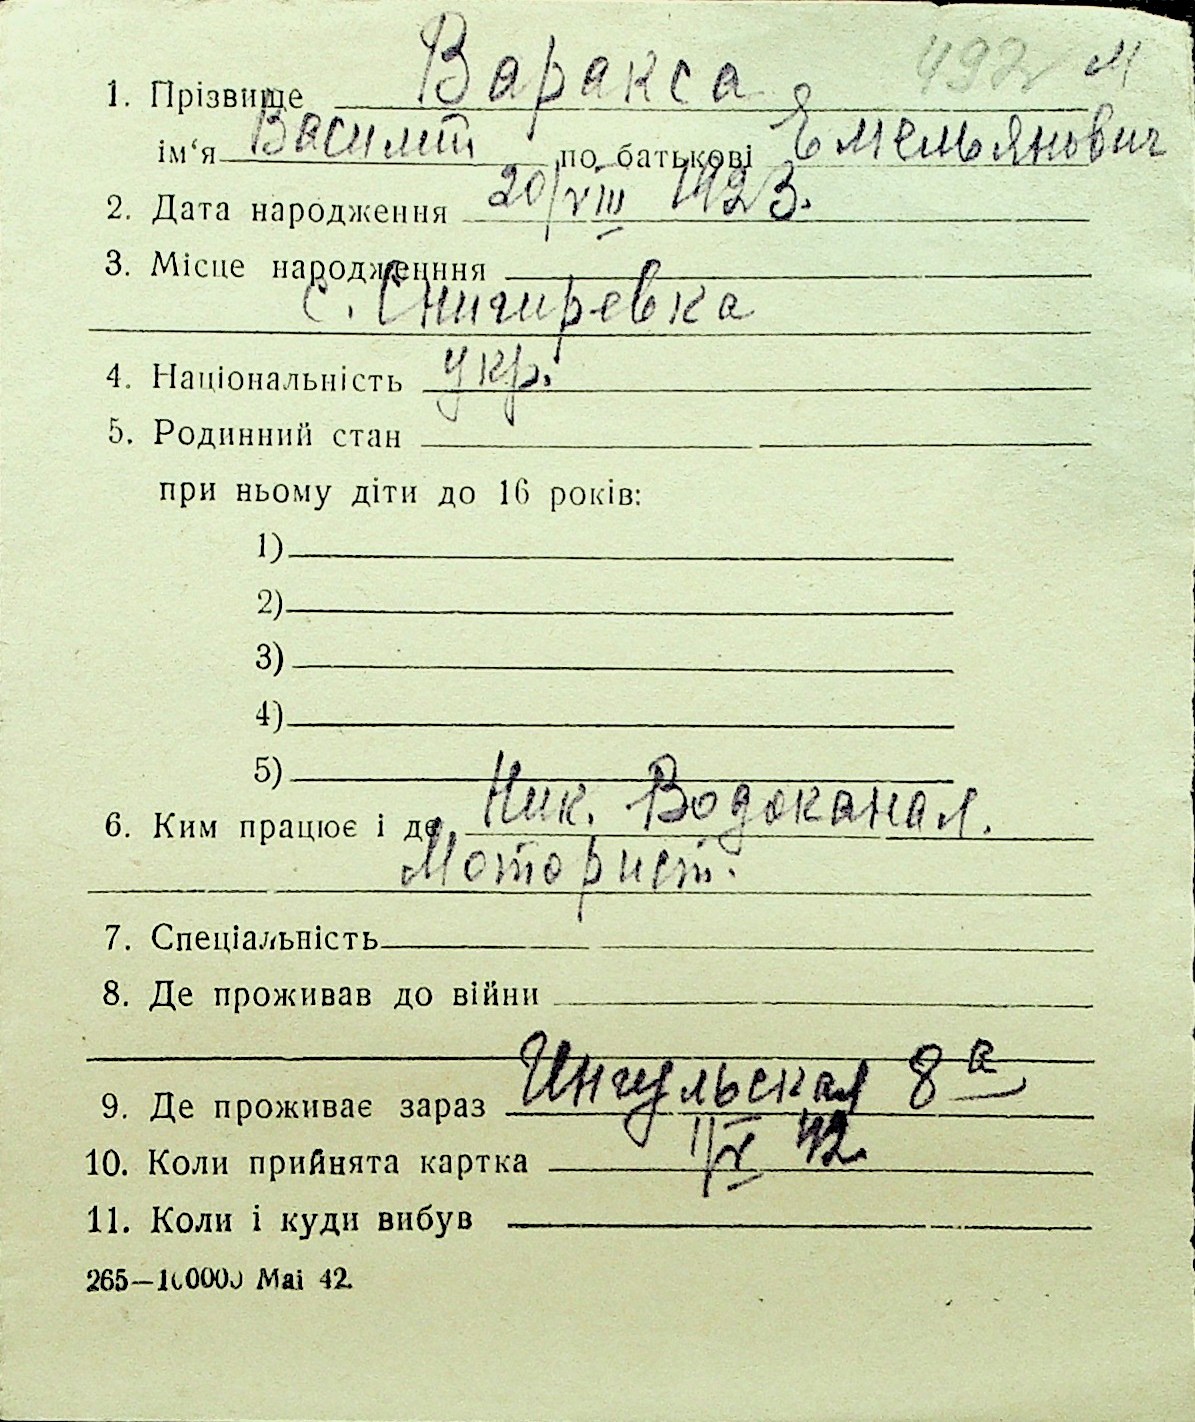 492 м
1. Прізвище Варакса
ім‘я Василий по батькові Емельянович
2. Дата народження 20/VIII 1923.
3. Місце народженння
с. Снигиревка
4. Національність укр.
5. Родинний стан
при ньому діти до 16 років:
1)
2)
3)
4)
5)
6. Ким працює і де Ник. Водоканал.
Моторист.
7. Спеціальність
8. Де проживав до війни
9. Де проживає зараз Ингульская 8а
10. Коли прийнята картка 11/V 42.
11. Коли і куди вибув
265—100000 Mai 42.